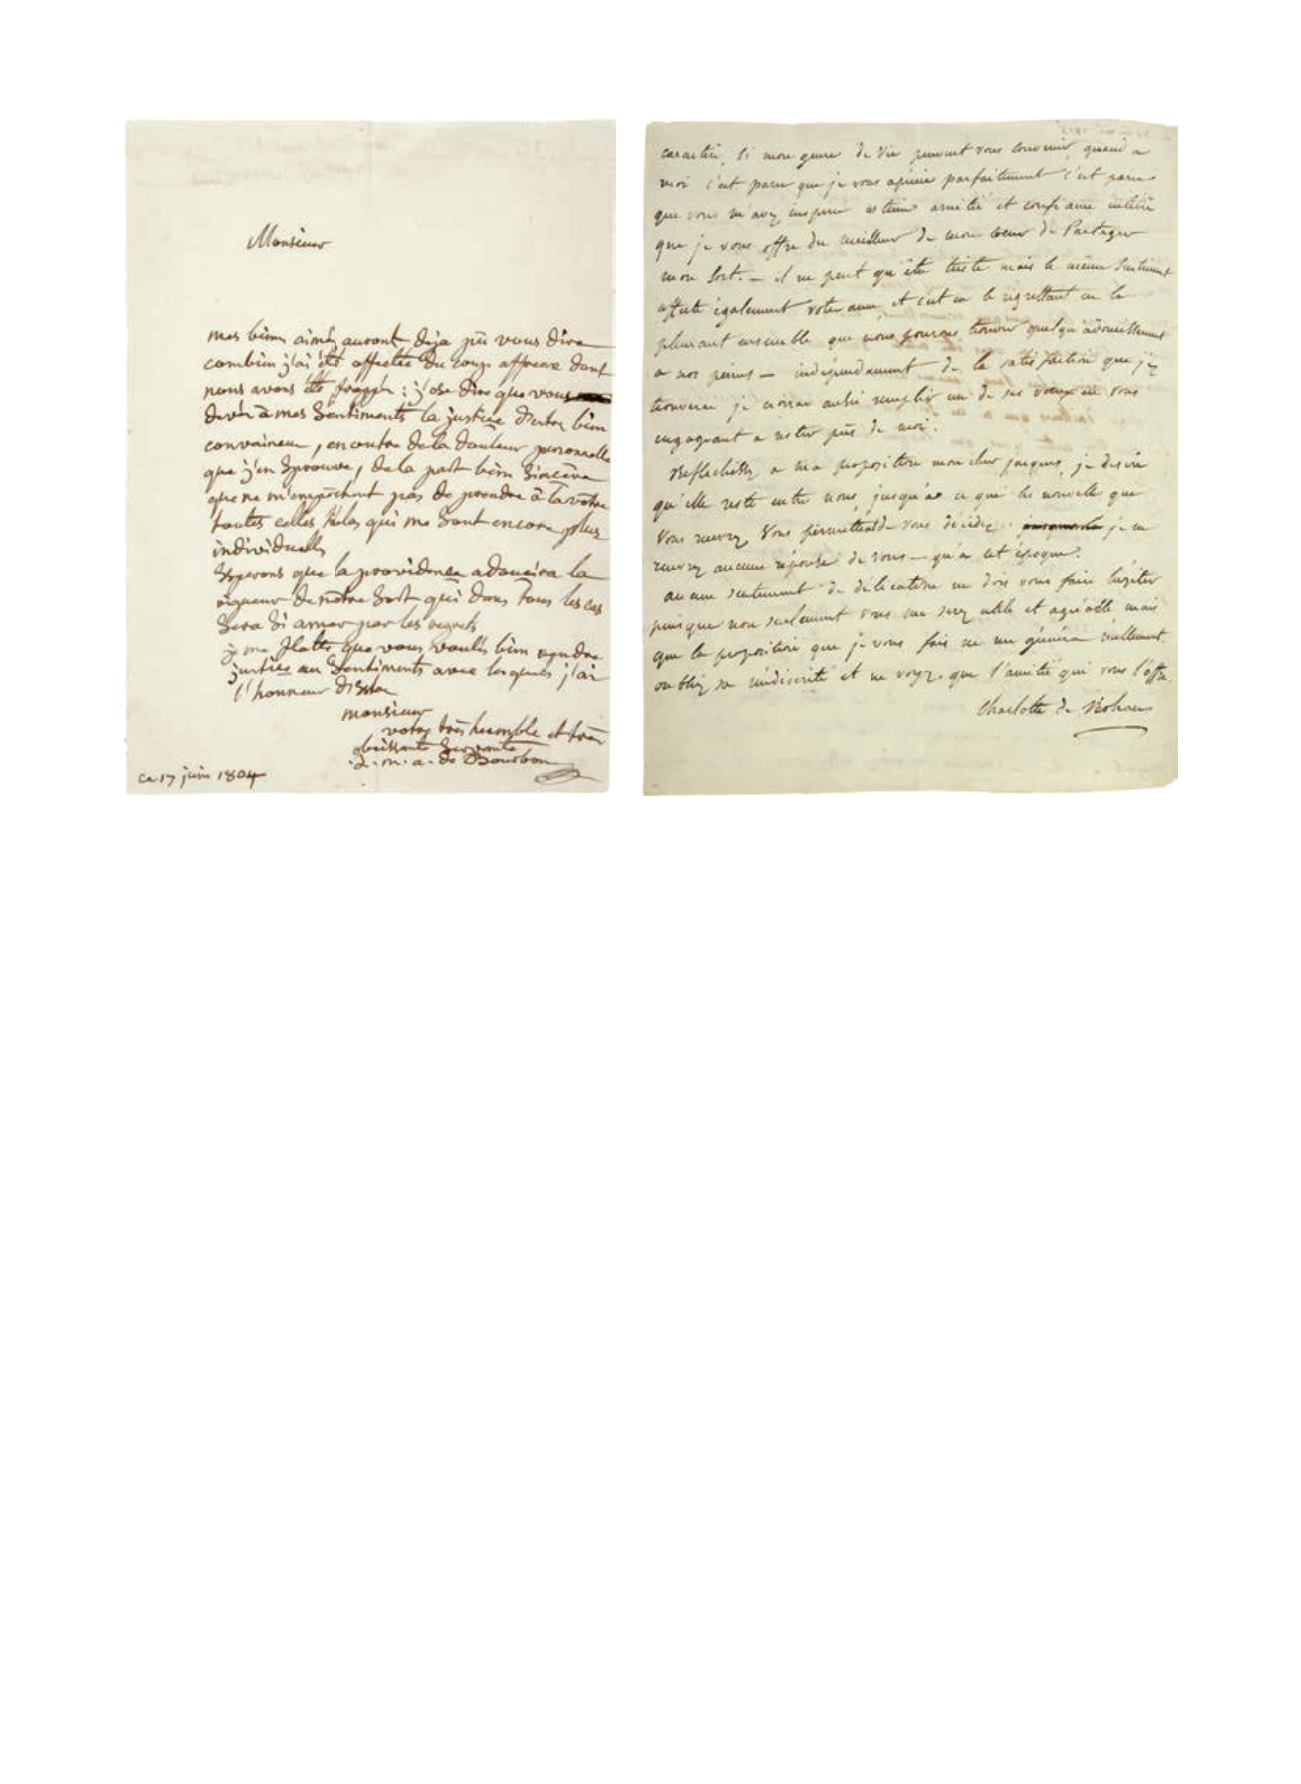 Monsieur
mes bien aimés auront déja pû vous dire
combien j'ai été affectée du coup affreux dont
nous avons été frappés : j'ose dire que vous
devés à mes Sentiments la justice d'estre bien
convaincu, en outre de la douleur personnelle
que j'en Eprouve, de la part bien Sincère
que ne m'empêchent pas de prendre à la vôtre
toutes celles hélas qui me Sont encore plus
individuelles
Esperons que la providence adoucira la
rigueur de nôtre Sort qui dans tous les cas
Sera Si amer par les regrets
je me flatte que vous voulés bien rendre
justice au Sentiments avec lesquels j'ai
l'honneur d'Estre
monsieur
votre très humble et très
obéissante Servante
L. m. a. de Bourbon
ce 17 juin 1804
caractère, si mon genre de vie peuvent vous convenir, quand a
moi c'est parce que je vous apprécie parfaitement c'est parce
que vous m'avez inspiré estime amitié et confiance entière
que je vous offre du meilleur de mon coeur de Partager
mon Sort. — il ne peut qu'être triste mais le même sentiment
affecte également votre ame, et c'est en le regrettant en le
pleurant ensemble que nous pourons trouver quelqu'adoucissement
a nos peines — indépendament de la satisfaction que j'y
trouverai je croirai aussi remplir un de ses voeux en vous
engageant a rester près de moi.
Reflechissez a ma proposition mon cher jacques, je desire
qu'elle reste entre nous, jusqu'a ce que les nouvelle que
vous recevrez vous permettent de vous décider. je ne
recevrez aucune réponse de vous — qu'a cet époque.
aucune sentiment de délicatesse ne dois vous faire hésiter
puisque non seulement vous me serez utile et agréable mais
que la proposition que je vous fais ne me génera nullement
oubliez sa indiscrété et ne voyez que l'amitié qui vous l'offre.
Charlotte de Rohan